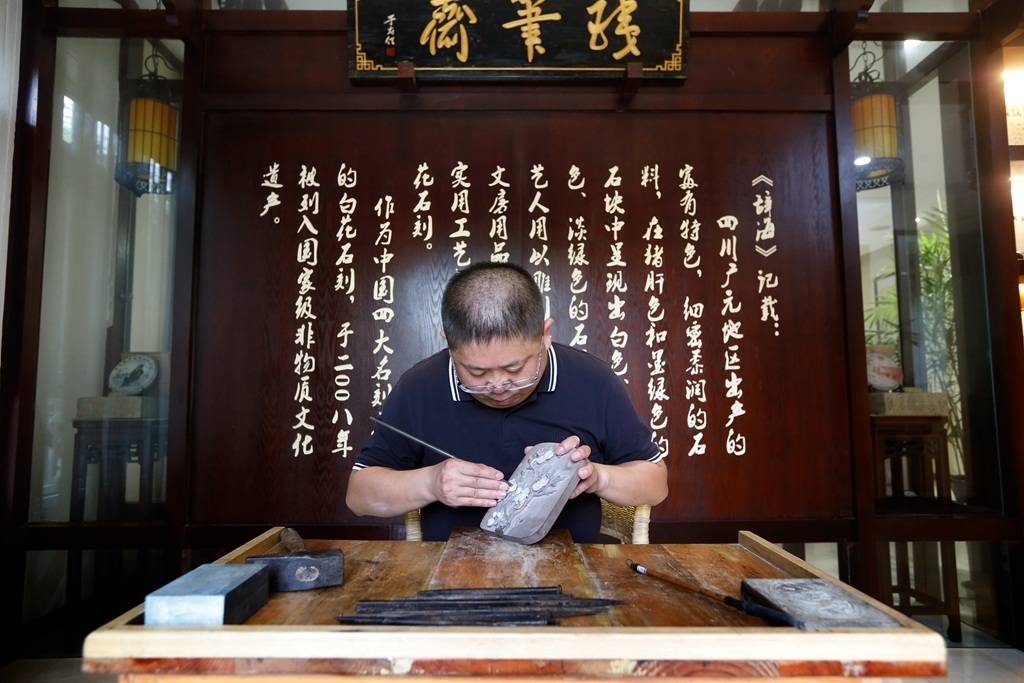 筆齋
《辞海》记载：
四川广元地区出产的
富有特色，细密柔润的石
料，在猪肝色和墨绿色的
石块中呈现出白色、
色、淡绿色的石
艺人用以雕
文房用品
实用工艺
花石刻。
作为中国四大名刻
的白花石刻，于二00八年
被列入国家级非物质文化
遗产。